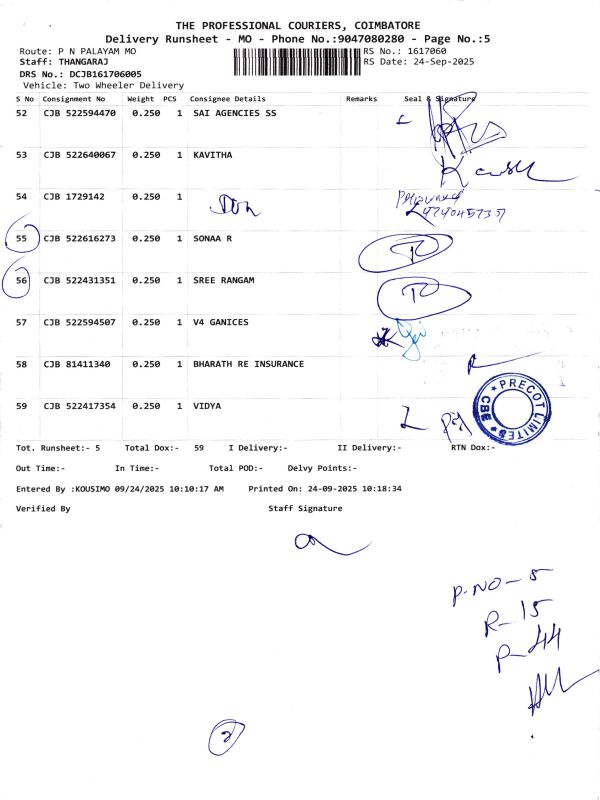 THE PROFESSIONAL COURIERS, COIMBATORE
Delivery Runsheet - MO - Phone No.:9047080280 - Page No.:5
Route: P N PALAYAM MO RS No.: 1617060
Staff: THANGARAJ RS Date: 24-Sep-2025
DRS No.: DCJB161706005
Vehicle: Two Wheeler Delivery
S No Consignment No Weight PCS Consignee Details Remarks Seal & Signature
52 CJB 522594470 0.250 1 SAI AGENCIES SS
53 CJB 522640067 0.250 1 KAVITHA
54 CJB 1729142 0.250 1
55 CJB 522616273 0.250 1 SONAA R
56 CJB 522431351 0.250 1 SREE RANGAM
57 CJB 522594507 0.250 1 V4 GANICES
58 CJB 81411340 0.250 1 BHARATH RE INSURANCE
59 CJB 522417354 0.250 1 VIDYA
PRECOT LIMITED
CBE
Tot. Runsheet:- 5 Total Dox:- 59 I Delivery:- II Delivery:- RTN Dox:-
Out Time:- In Time:- Total POD:- Delvy Points:-
Entered By :KOUSIMO 09/24/2025 10:10:17 AM Printed On: 24-09-2025 10:18:34
Verified By Staff Signature
P.NO - 5
R - 15
P - 44
2